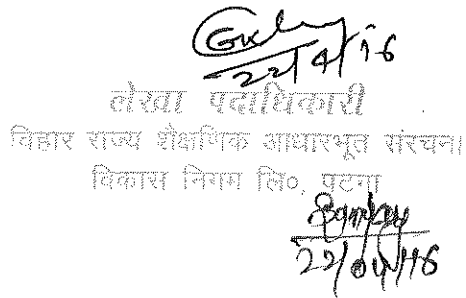 22/4/16
लेखा पदाधिकारी
बिहार राज्य शैक्षणिक आधारभूत संरचना
विकास निगम लि०, पटना
22/04/16